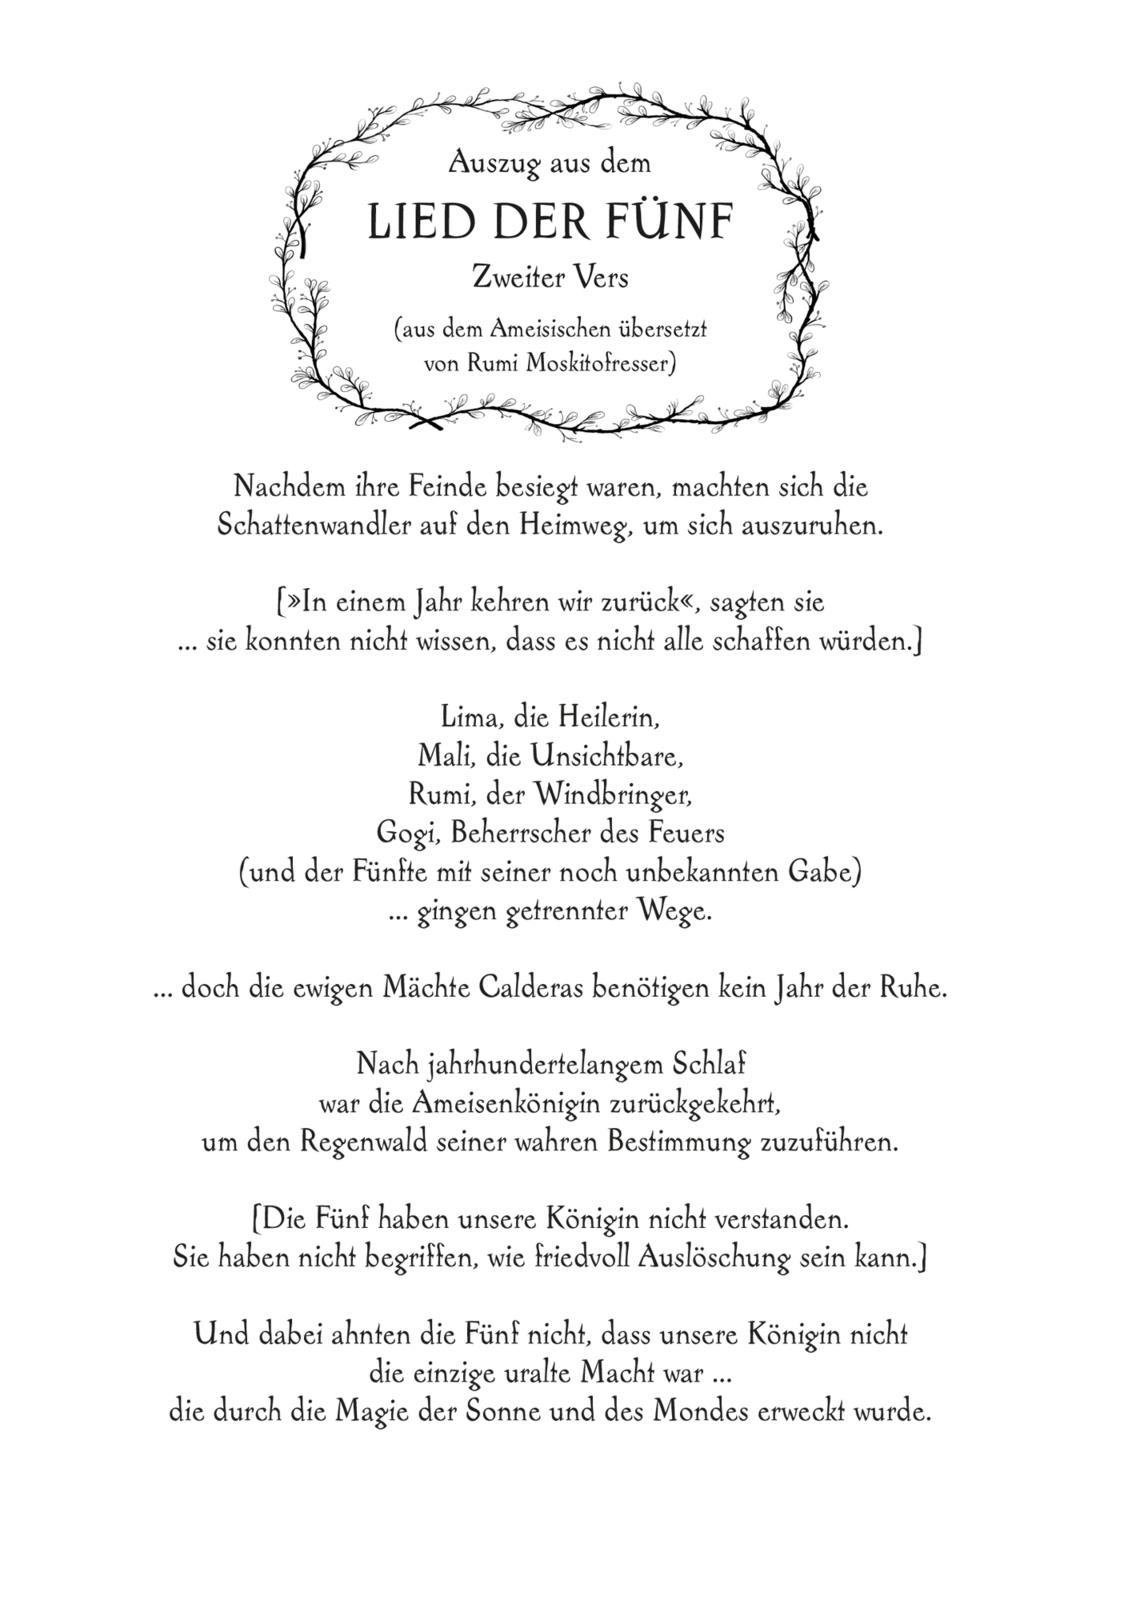 Auszug aus dem
LIED DER FÜNF
Zweiter Vers
(aus dem Ameisischen übersetzt
von Rumi Moskitofresser)
Nachdem ihre Feinde besiegt waren, machten sich die
Schattenwandler auf den Heimweg, um sich auszuruhen.
[»In einem Jahr kehren wir zurück«, sagten sie
... sie konnten nicht wissen, dass es nicht alle schaffen würden.]
Lima, die Heilerin,
Mali, die Unsichtbare,
Rumi, der Windbringer,
Gogi, Beherrscher des Feuers
(und der Fünfte mit seiner noch unbekannten Gabe)
... gingen getrennter Wege.
... doch die ewigen Mächte Calderas benötigen kein Jahr der Ruhe.
Nach jahrhundertelangem Schlaf
war die Ameisenkönigin zurückgekehrt,
um den Regenwald seiner wahren Bestimmung zuzuführen.
[Die Fünf haben unsere Königin nicht verstanden.
Sie haben nicht begriffen, wie friedvoll Auslöschung sein kann.]
Und dabei ahnten die Fünf nicht, dass unsere Königin nicht
die einzige uralte Macht war ...
die durch die Magie der Sonne und des Mondes erweckt wurde.